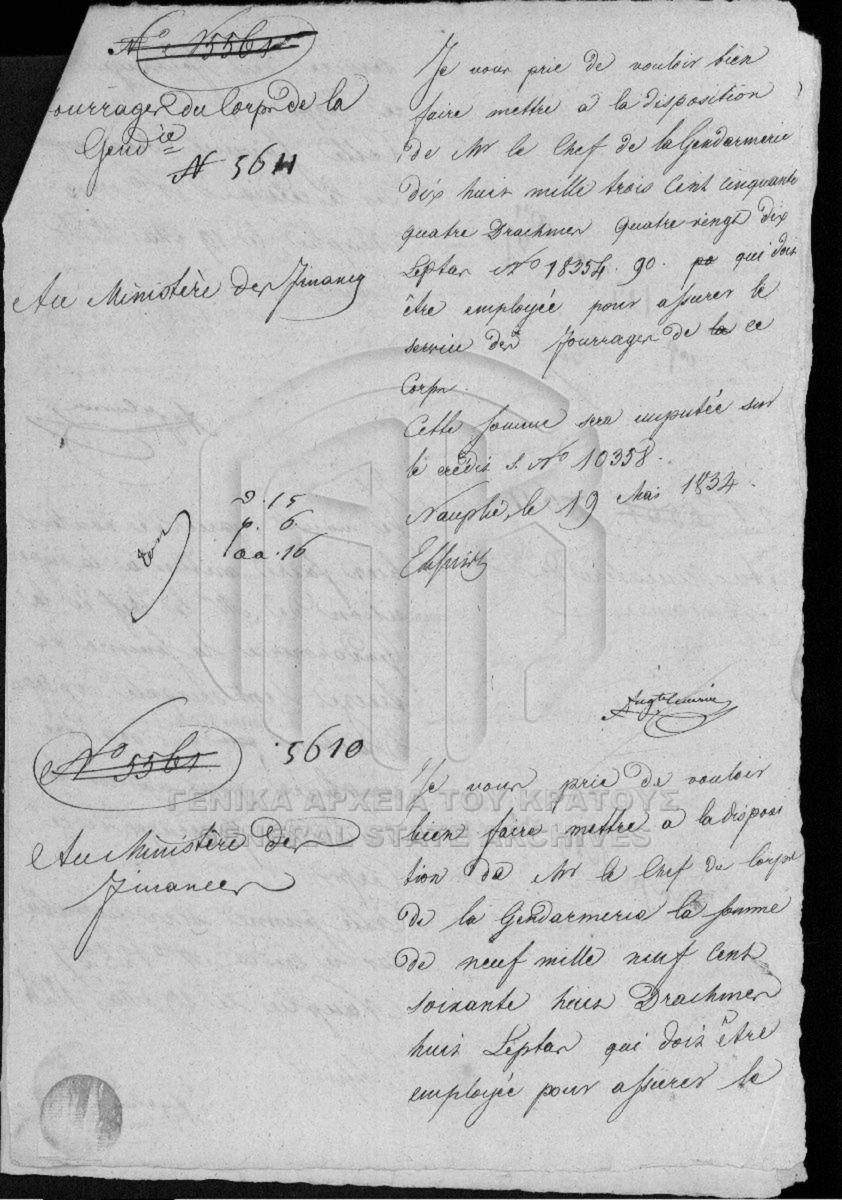 N° 5561
ourrages du Corps de la
Gend.ie
N 5611
Au Ministère des Finances
Je vous prie de vouloir bien
faire mettre a la disposition
de Mr le Chef de la Gendarmerie
dix huit mille trois Cent cinquante
quatre Drachmes quatre vingt dix
Leptas N° 18354.90. po qui doit
être employée pour assurer le
service des fourrages de la ce
Corps.
Cette somme sera imputée sur
le crédit s. N° 10358.
Nauplie, le 19 Mai 1834.
.15
p. 6
aa.16
N° 5561
5610
Au Ministère des
Finances
Je vous prie de vouloir
bien faire mettre a la disposi
tion de Mr le Chef du Corps
de la Gendarmerie la somme
de neuf mille neuf Cent
soixante huit Drachmes
huit Leptas qui doit être
employée pour assurer le
ΓΕΝΙΚΑ ΑΡΧΕΙΑ ΤΟΥ ΚΡΑΤΟΥΣ
GENERAL STATE ARCHIVES